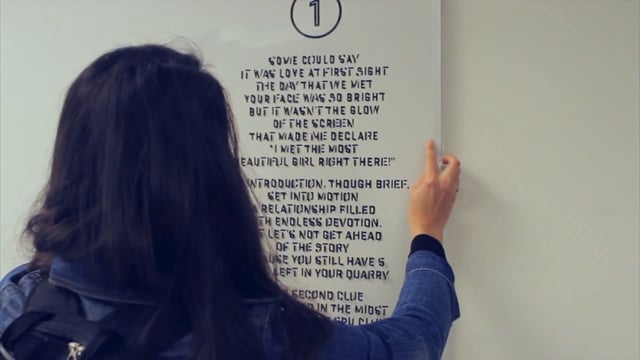 1
SOME COULD SAY
IT WAS LOVE AT FIRST SIGHT
THE DAY THAT WE MET
YOUR FACE WAS SO BRIGHT
BUT IT WASN'T THE GLOW
OF THE SCREEN
THAT MADE ME DECLARE
"I MET THE MOST
EAUTIFUL GIRL RIGHT THERE!"
INTRODUCTION, THOUGH BRIEF,
SET INTO MOTION
RELATIONSHIP FILLED
ENDLESS DEVOTION.
LET'S NOT GET AHEAD
OF THE STORY
YOU STILL HAVE 5
LEFT IN YOUR QUARRY
SECOND CLUE
IN THE MIDST